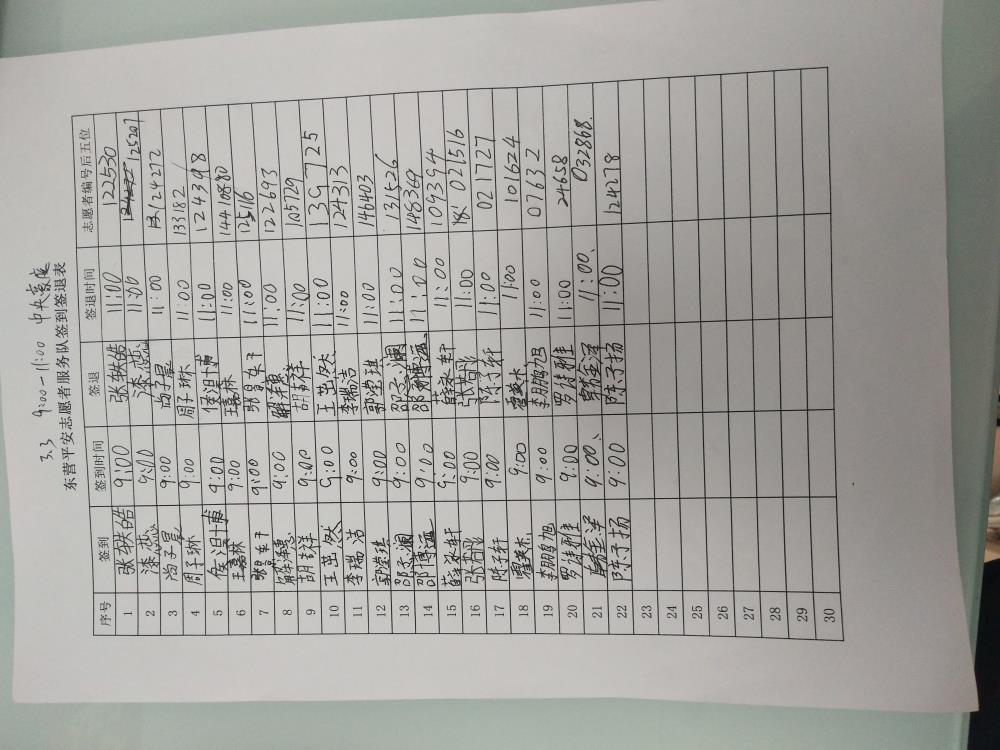 3.3 9:00-11:00 中央豪庭
东营平安志愿者服务队签到签退表
序号 签到 签到时间 签退 签退时间 志愿者编号后五位
1 张轶皓 9:00 张轶皓 11:00 122530
2 漆恋 9:00 漆恋 11:00 125207
3 尚子晨 9:00 尚子晨 11:00 124272
4 周子琳 9:00 周子琳 11:00 133182
5 侯淇博 9:00 侯淇博 11:00 124398
6 王嘉林 9:00 王嘉林 11:00 144108
7 9:00 11:00 125116
8 解泽惠 9:00 解泽惠 11:00 122693
9 胡喆祥 9:00 胡喆祥 11:00 105729
10 王芷然 9:00 王芷然 11:00 139725
11 李瑞洁 9:00 李瑞洁 11:00 124313
12 郭滢琪 9:00 郭滢琪 11:00 146403
13 邵子澜 9:00 邵子澜 11:00 131526
14 邵博远 9:00 邵博远 11:00 148369
15 薛泳轩 9:00 薛泳轩 11:00 109394
16 张若彤 9:00 张若彤 11:00 021516
17 陈子轩 9:00 陈子轩 11:00 021727
18 9:00 11:00 101624
19 李鹏旭 9:00 李鹏旭 11:00 07632
20 罗婧雅 9:00 罗婧雅 11:00 24658
21 9:00、 11:00、 032868.
22 陈子扬 9:00 陈子扬 11:00 124278
23
24
25
26
27
28
29
30